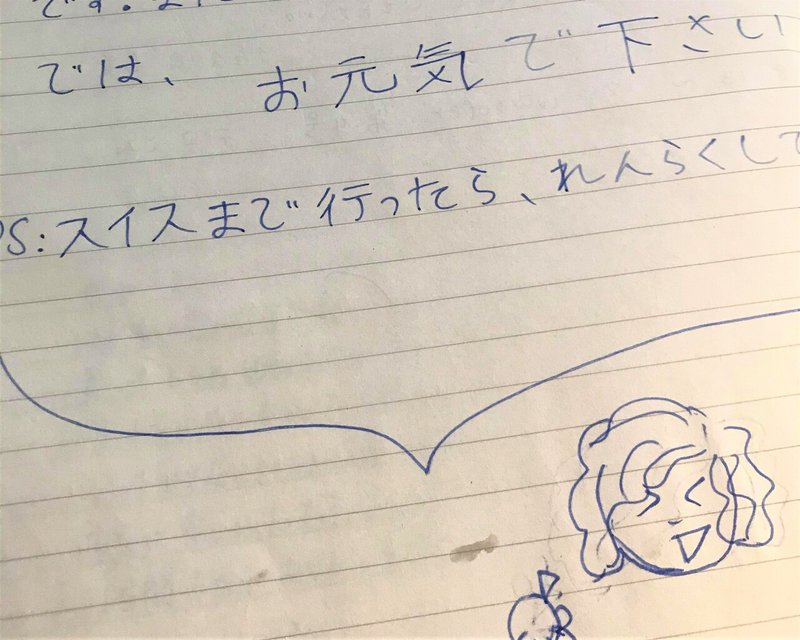 です。
では、 お元気で下さい
PS:スイスまで行ったら、れんらくして